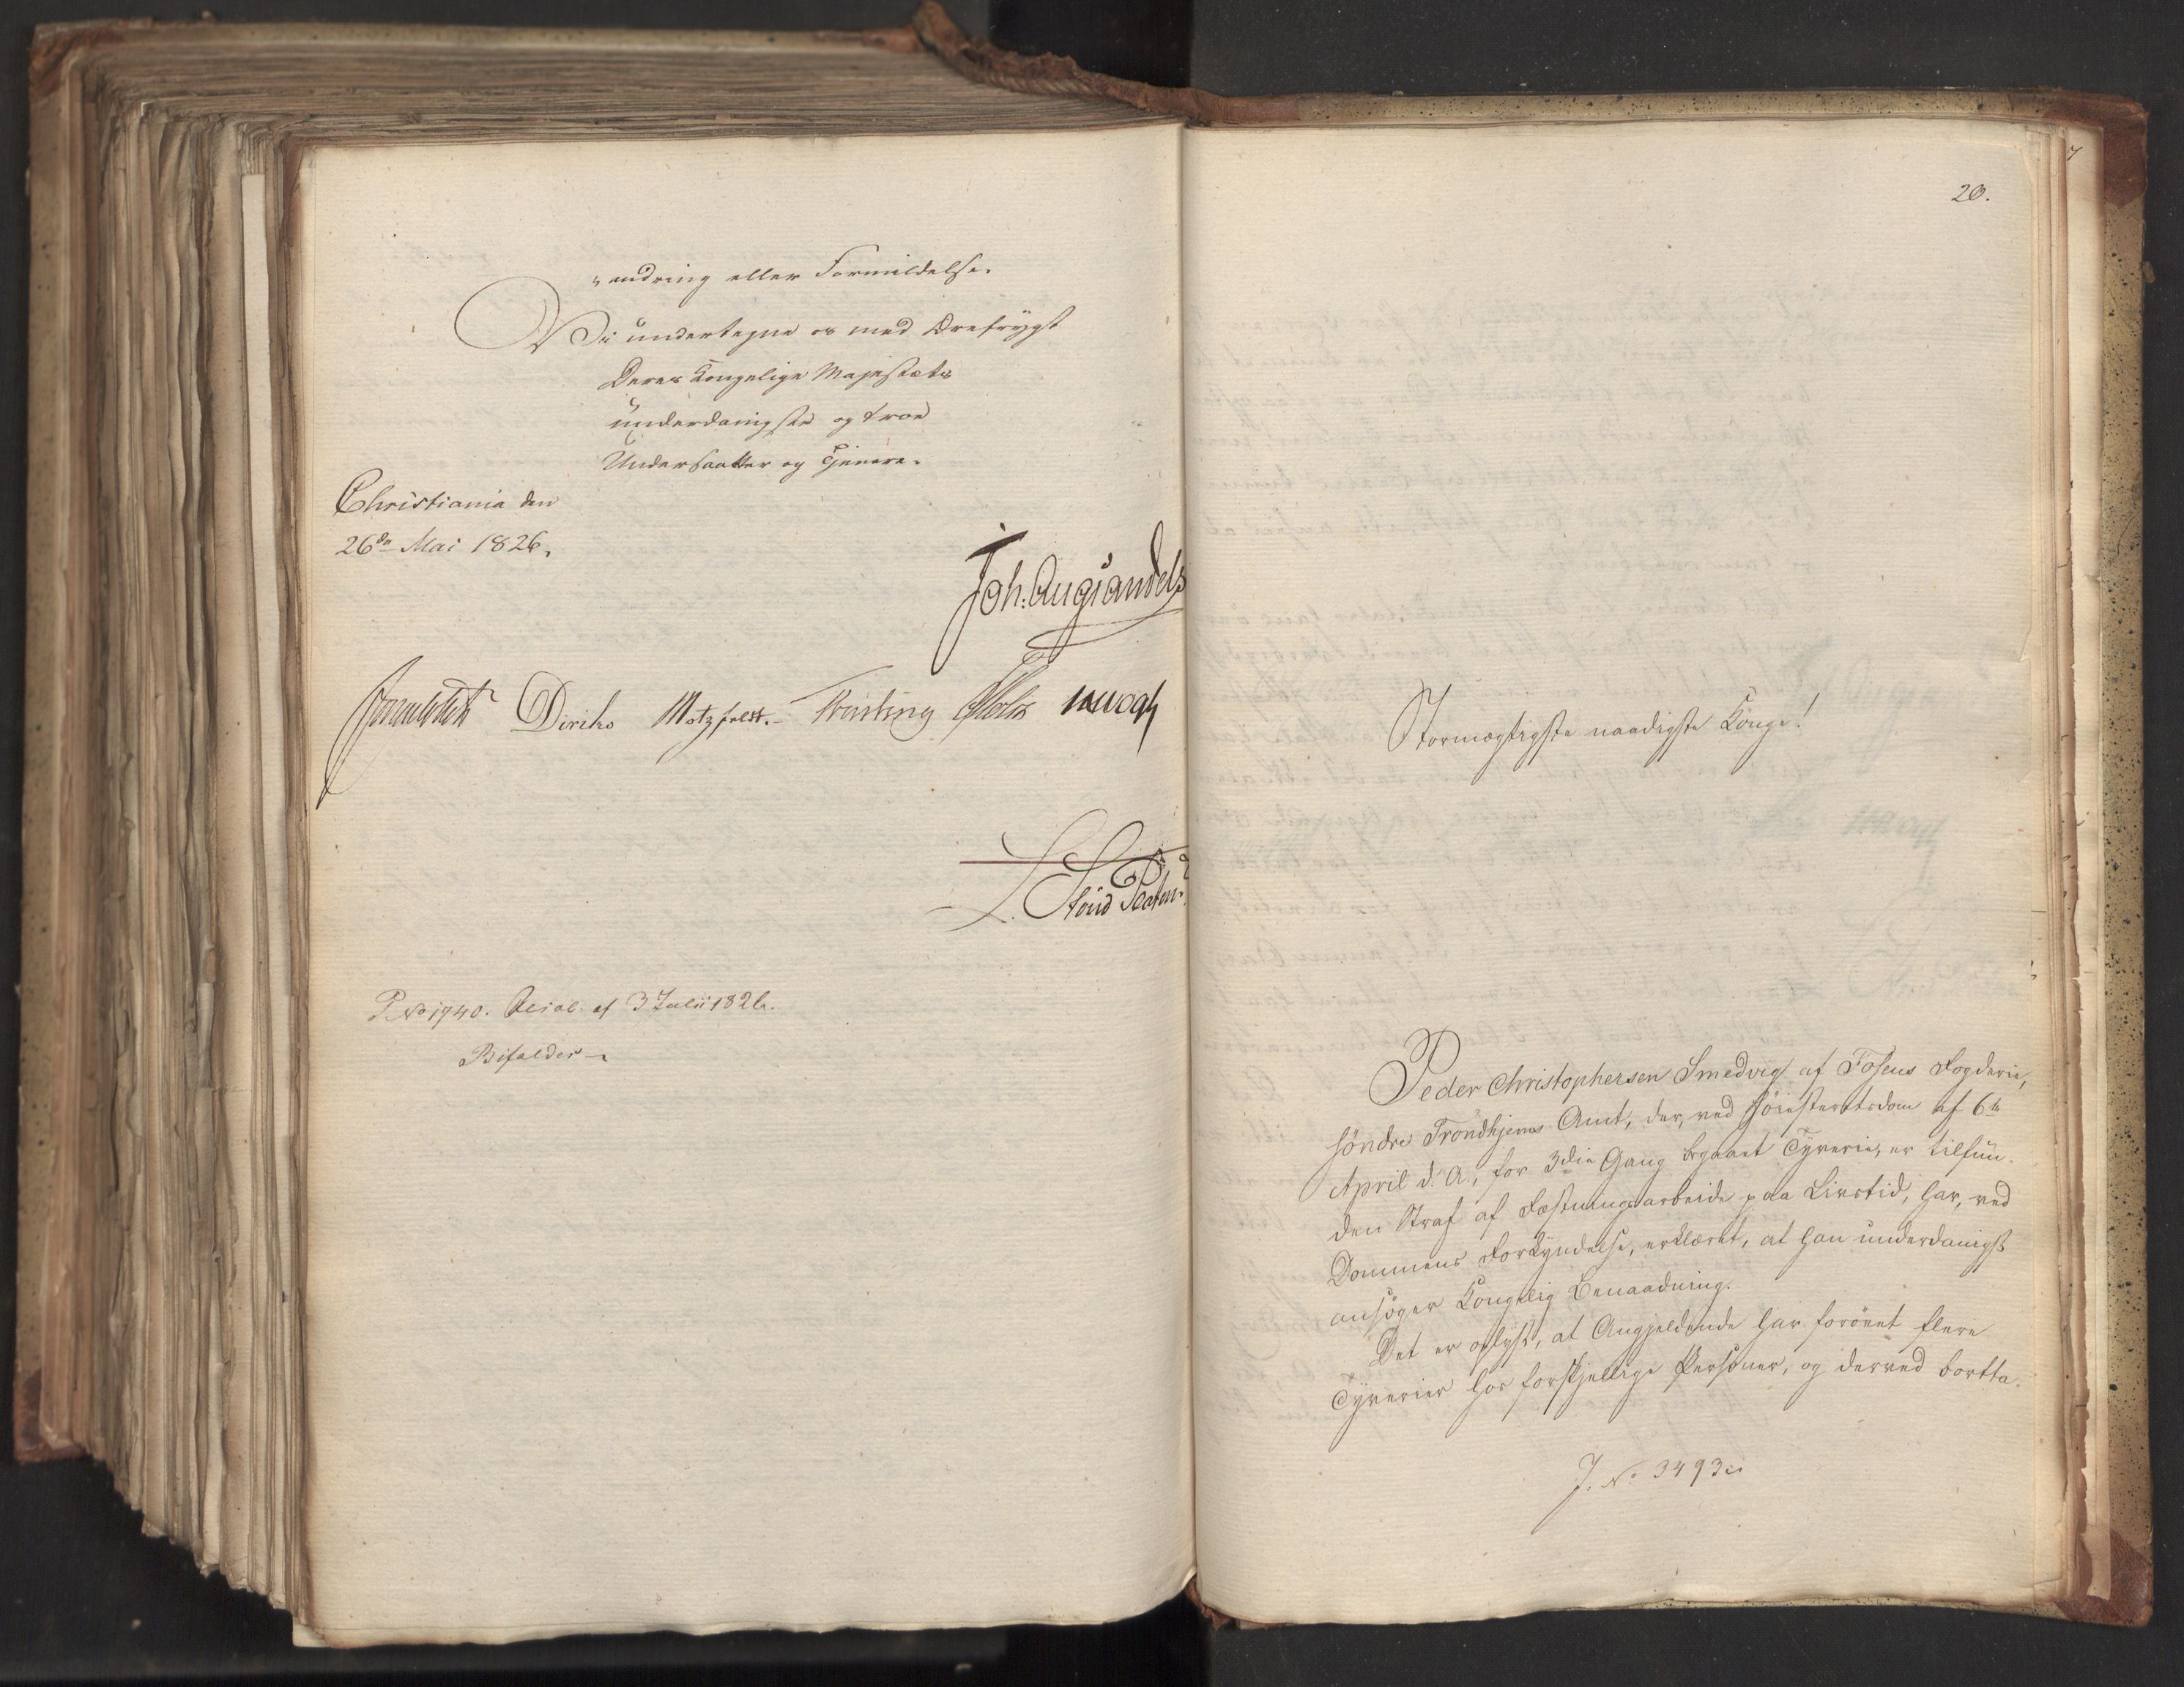 „andring eller Formildelse.
Vi undertegne os med Ærefrygt
Deres Kongelige Majestæts
underdanigste og troe
Undersaatter og Tjenere.
Christiania den
26de Mai 1826.
Joh: Aug: Sandels
Diriks Motzfeldt. Treschow
L. Stoud Platou.
P. No 1740. Resol. af 3 Julii 1826.
Bifaldes
20.
Stormægtigste naadigste Konge!
Peder Christophersen Smedvig af Fosens Fogderie,
søndre Trondhjems Amt, der, ved Høiesteretsdom af 6te
April d. A., for 3die Gang begaaet Tyverie, er tilfun-
den Straf af Fæstningsarbeide paa Livstid, har, ved
Dommens Forkyndelse, erklæret, at han underdanigst
ansøger Kongelig Benaadning.
Det er oplyst, at Angjeldende har forøvet flere
Tyverier hos forskjellige Personer, og derved bortta-
J. No 3493